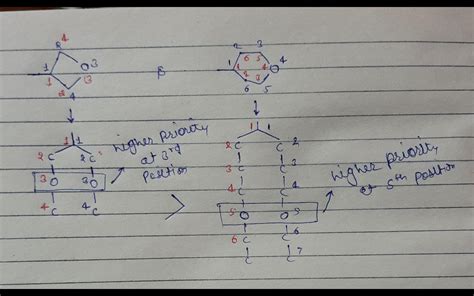 2 4
O 3
1 1 3
2 4
&
2 3
1 6 5 O 4
1 4
2 3
6 5
1 1
2 C C 2
higher priority
at 3rd
position
3 O O 3
4 C C
>
1 1
2 C C 2
3 C C 3
4 C C 4
5 O O 5
higher priority
at 5th position
6 C C 6
C C 7